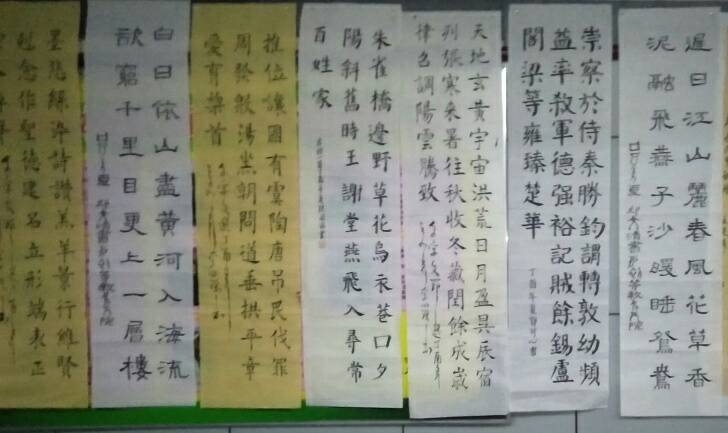 遲日江山麗春風花草香
泥融飛燕子沙暖睡鴛鴦
崇察於侍秦勝鈞謂轉敦幼頻
益率敎軍德强裕記賊餘錫盧
閣梁等雍臻楚華
天地玄黃宇宙洪荒日月盈昃辰宿
列張寒来暑往秋收冬藏閏餘成歲
律呂調陽雲騰致
朱雀橋邊野草花烏衣巷口夕
陽斜舊時王謝堂燕飛入尋常
百姓家
推位讓國有虞陶唐吊民伐罪
周發殷湯坐朝問道垂拱平章
愛育黎首
白日依山盡黃河入海流
欲窮千里目更上一層樓
墨悲絲染詩讚羔羊景行維賢
剋念作聖德建名立形端表正